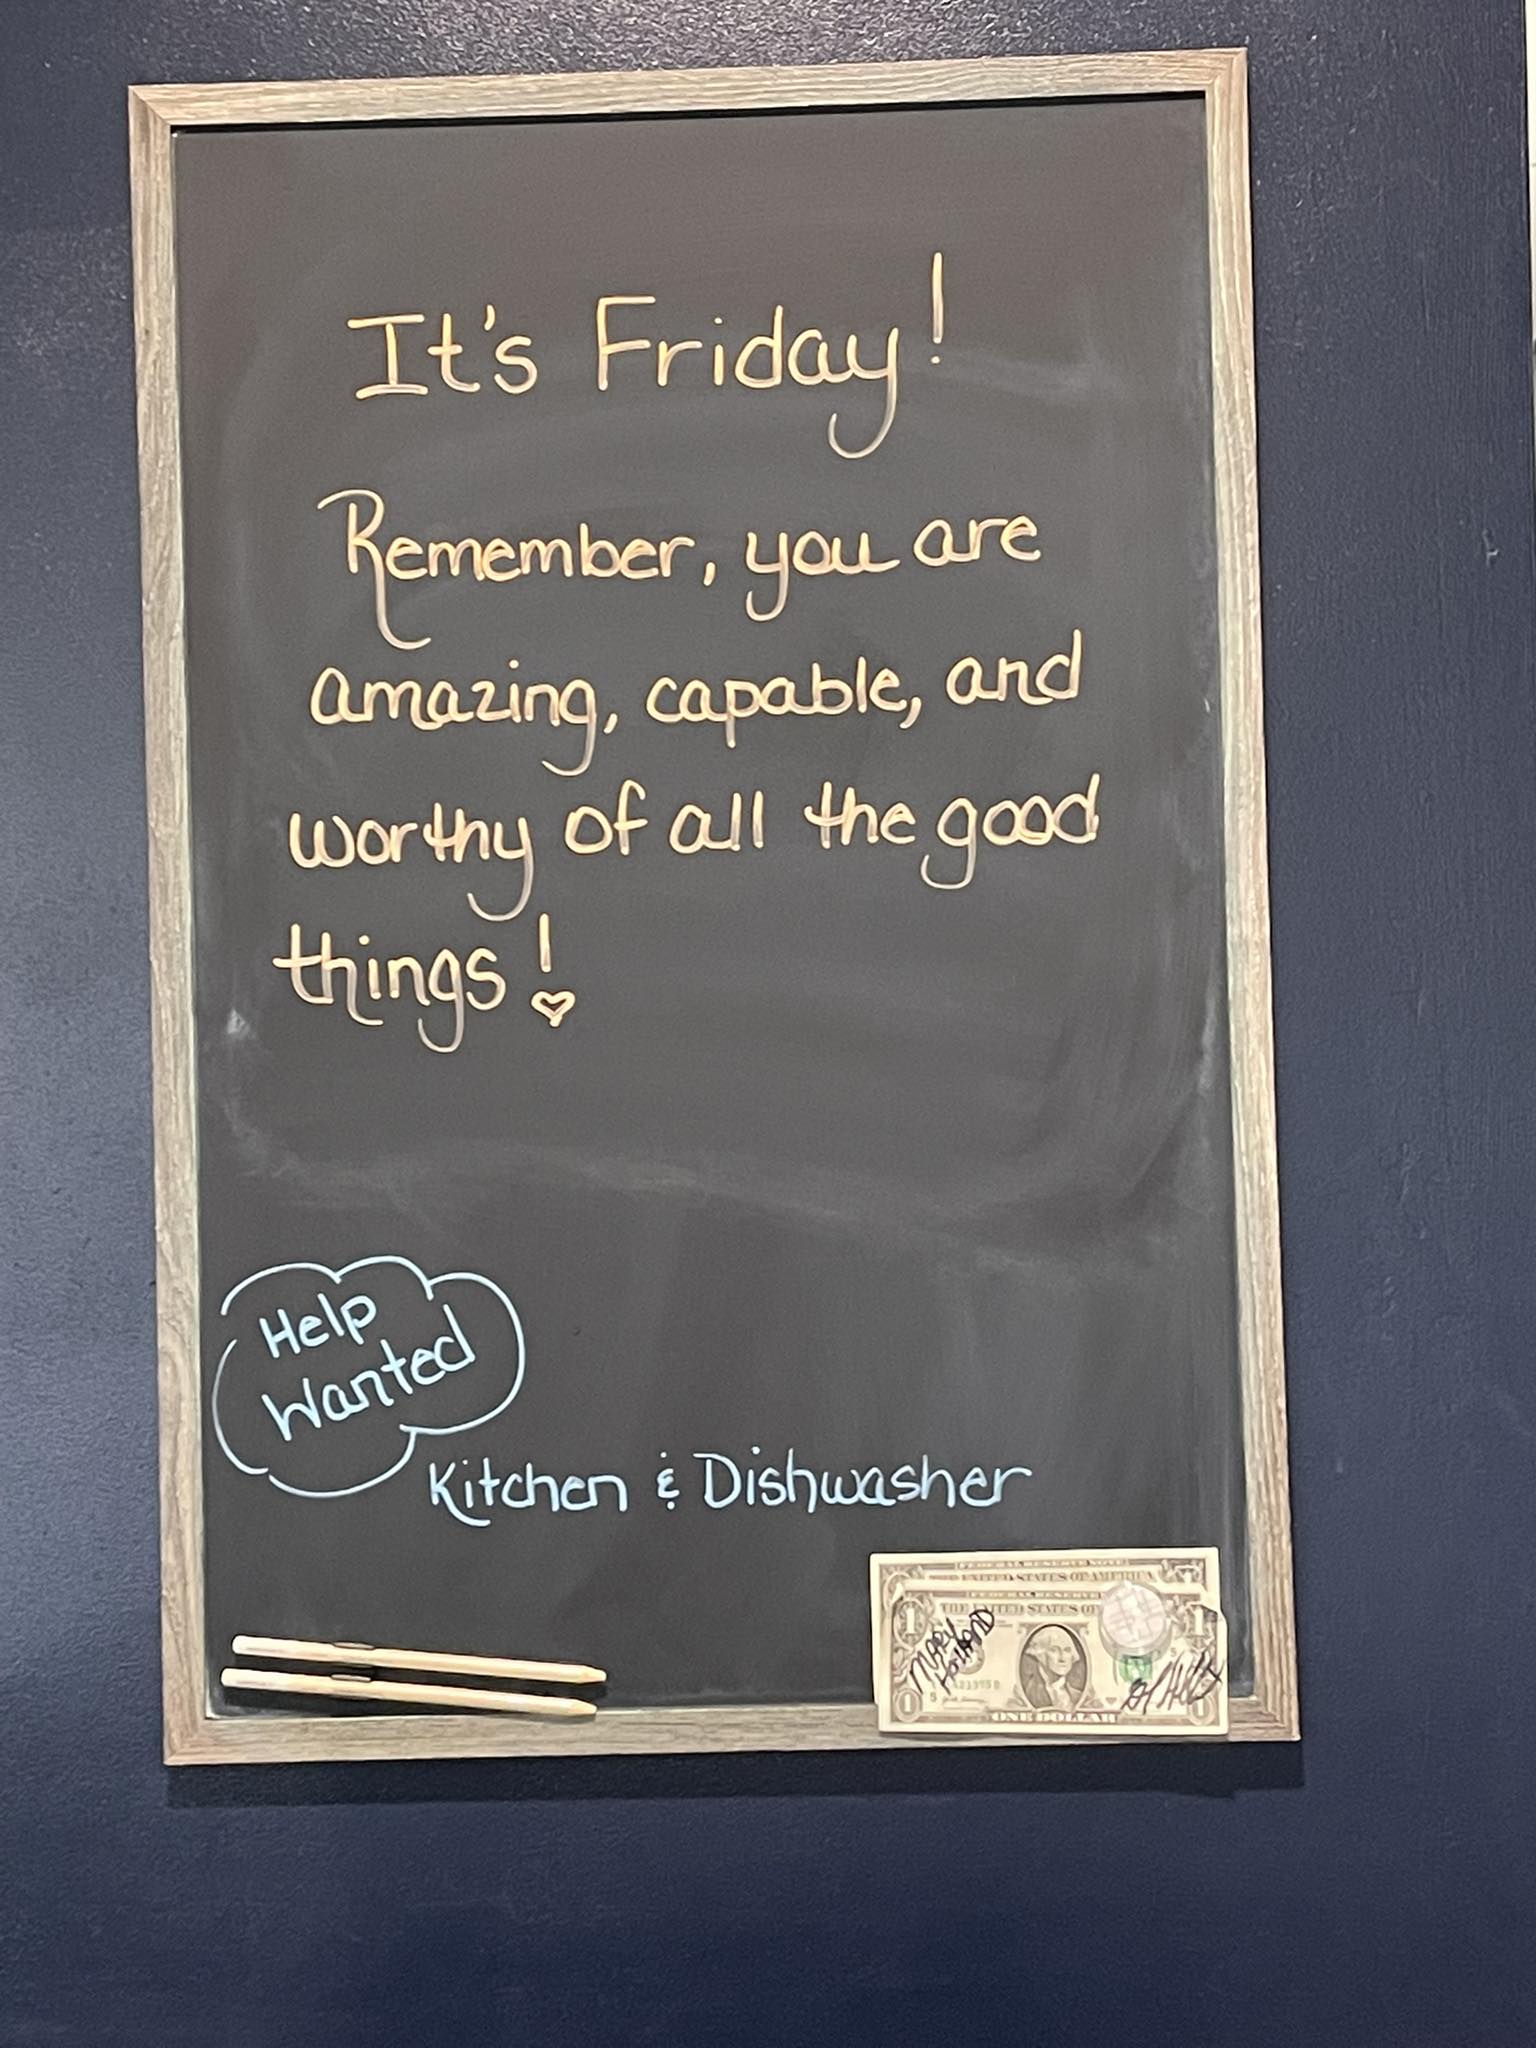 It's Friday!
Remember, you are
amazing, capable, and
worthy of all the good
things!
Help
Wanted
Kitchen & Dishwasher
FEDERAL RESERVE NOTE
UNITED STATES OF AMERICA
FEDERAL RESERVE
THE UNITED STATES OF
1
1
MARY
HOLLAND
1
1
ONE DOLLAR